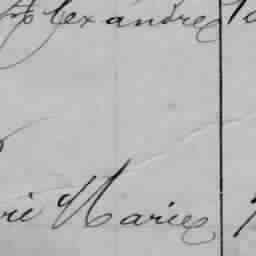 Alexandre
rie Marie